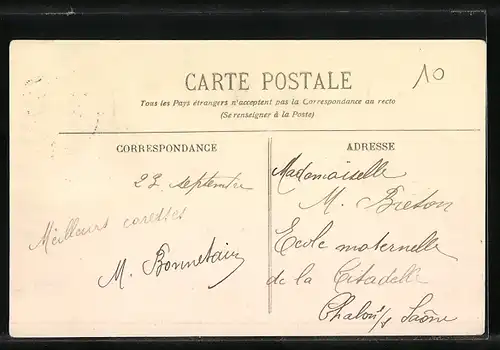 CARTE POSTALE
10
Tous les Pays étrangers n'acceptent pas la Correspondance au recto
(Se renseigner à la Poste)
CORRESPONDANCE
23 septembre
Meilleurs caresses
M. Bonnetain
ADRESSE
Mademoiselle
M. Breton
Ecole maternelle
de la Citadelle
Chalon s/s Saône